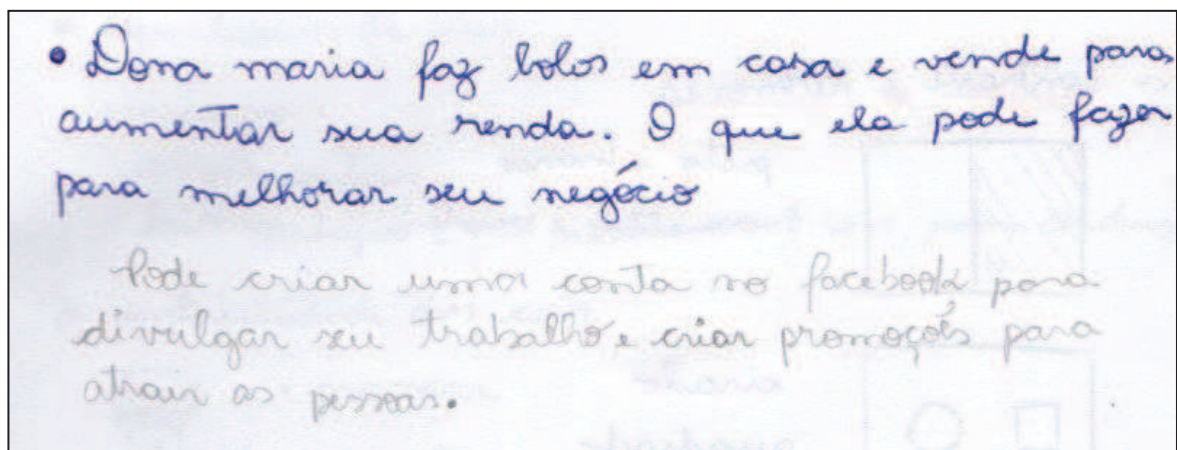 • Dona maria faz bolos em casa e vende para
aumentar sua renda. O que ela pode fazer
para melhorar seu negócio
Pode criar uma conta no facebook para
divulgar seu trabalho e criar promoções para
atrair as pessoas.